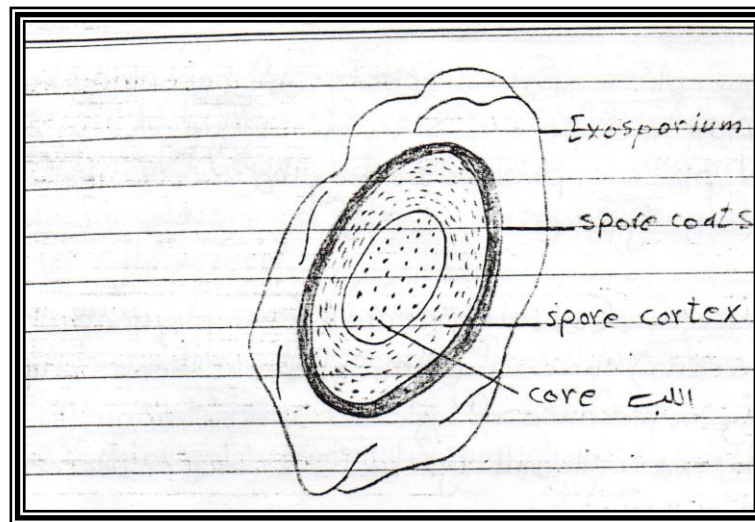 Exosporium
spore coats
spore cortex
core اللب